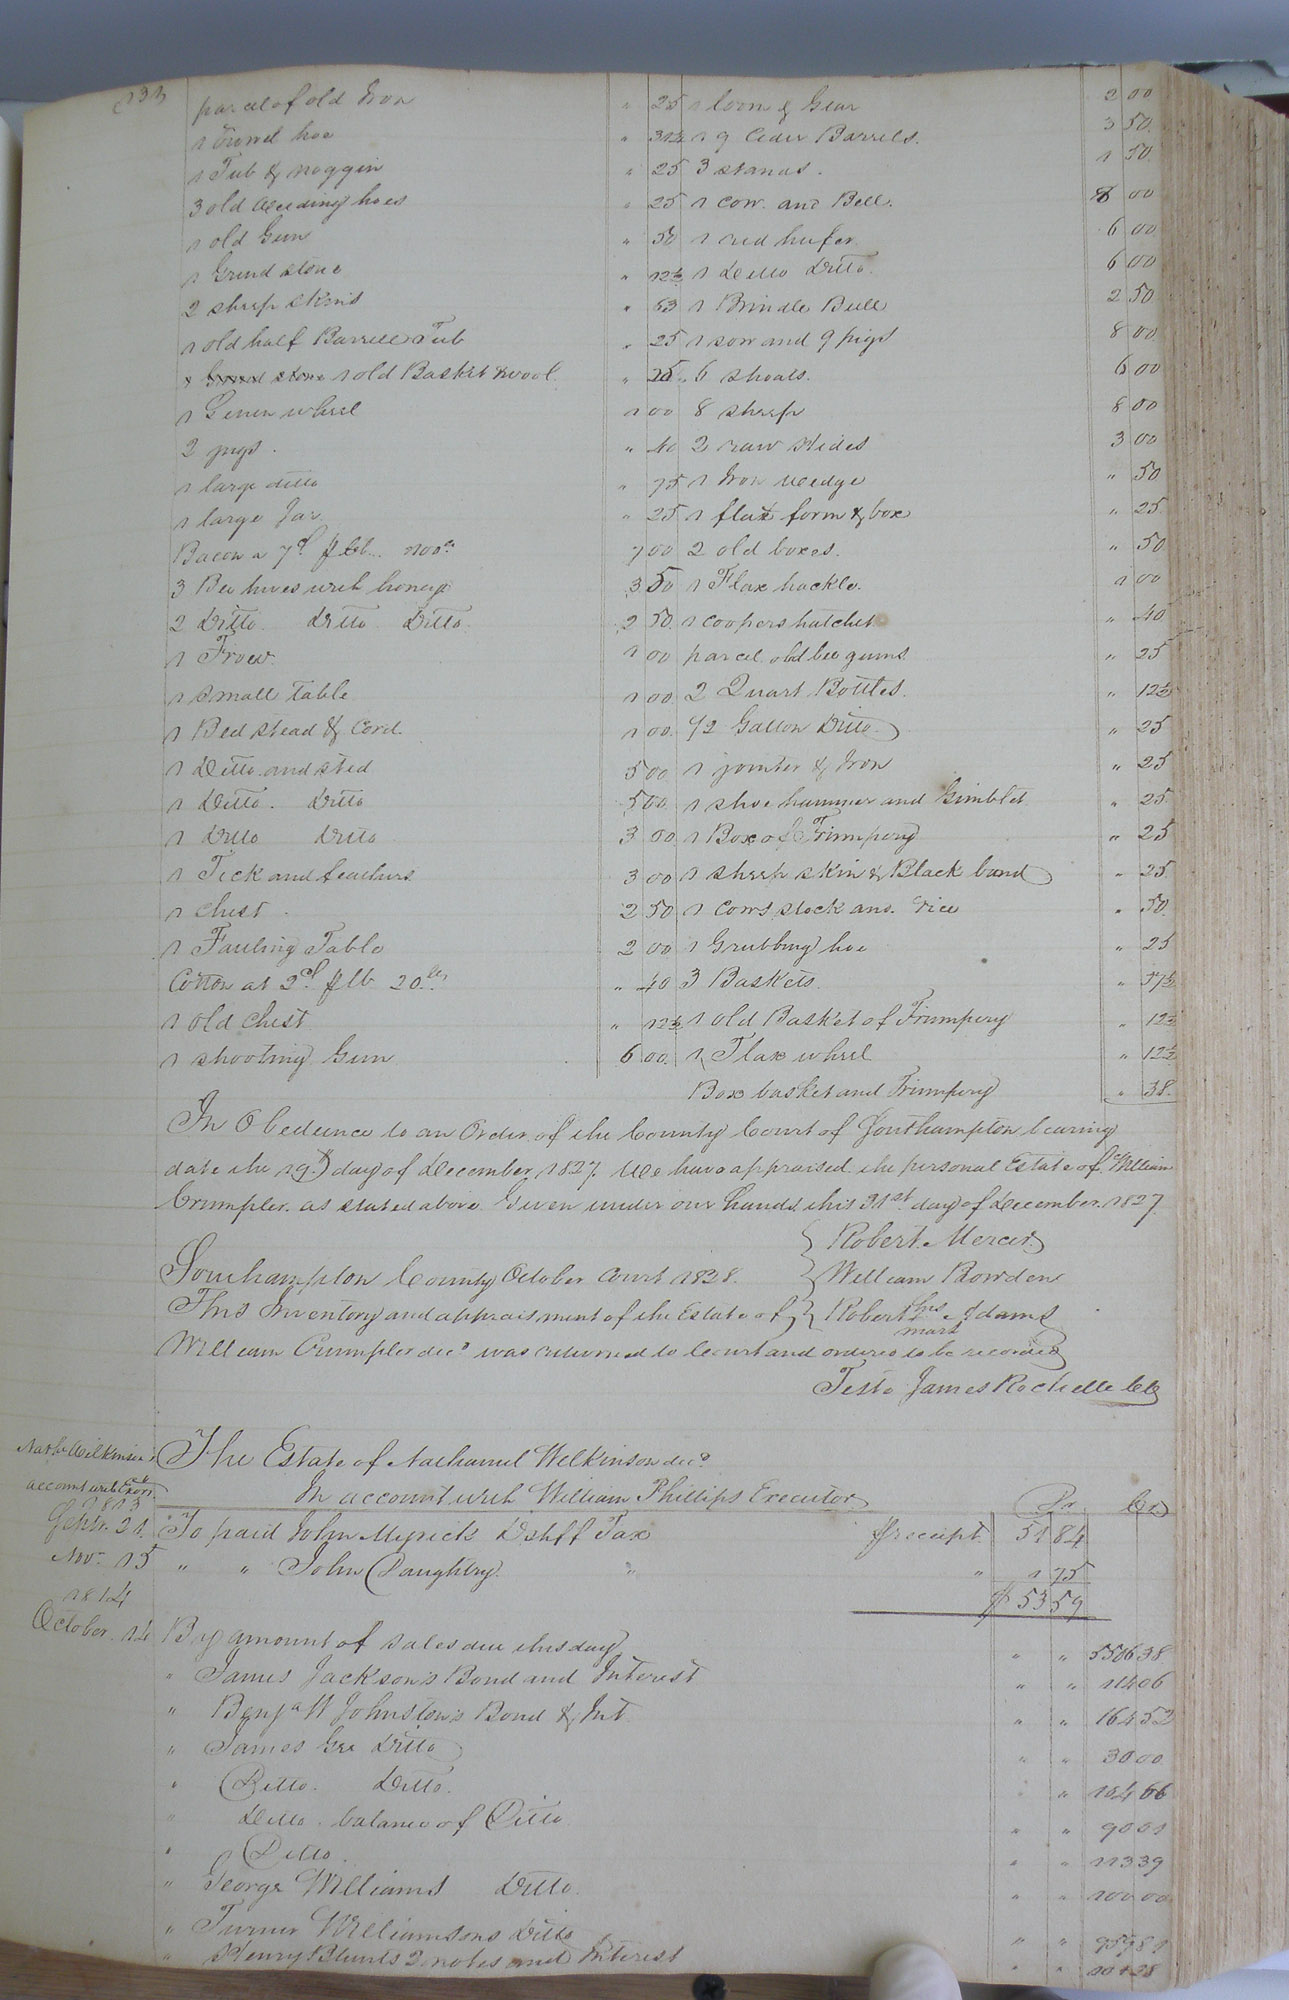 232
parcel of old Iron " 25
1 Trowel hoe " 31¼
1 Tub & noggin " 25
3 old weeding hoes " 25
1 old Gun " 50
1 Grind stone " 12½
2 sheep skins " 53
1 old half Barrell Tub " 25
1 old Basket & wool " 25
1 Linen wheel 1 00
2 jugs " 40
1 large ditto " 75
1 large Jar " 25
Bacon a 7d p lb 100 7 00
3 Bee hives with honey 3 50
2 Ditto Ditto Ditto 2 50
1 Frow 1 00
1 small table 1 00
1 Bed stead & Cord 1 00
1 Ditto and sted 5 00
1 Ditto Ditto 5 00
1 Ditto Ditto 3 00
1 Tick and feathers 3 00
1 chest 2 50
1 Fauling Table 2 00
Cotton at 2d p lb 20 lbs " 40
1 old chest " 12½
1 shooting Gun 6 00
1 loom & Gear 2 00
9 Ceder Barrels 3 50
3 stands 1 50
1 cow and Bell 8 00
1 red heifer 6 00
1 Ditto Ditto 6 00
1 Brindle Bull 2 50
1 sow and 9 pigs 8 00
6 shoats 6 00
8 sheep 8 00
2 raw Hides 3 00
1 Iron wedge " 50
1 flax form & box " 25
2 old boxes " 50
1 Flax hackle 1 00
1 coopers hatchet " 40
parcel old bee gums " 25
2 Quart Bottles " 12½
1/2 Gallon Ditto " 25
1 jointer & Iron " 25
1 shoe hammer and Gimblet " 25
1 Box of Trumpery " 25
1 sheep skin & Black band " 25
1 cows stock and vice " 50
1 Grubbing hoe " 25
3 Baskets " 37½
1 old Basket of Trumpery " 12½
1 Flax wheel " 12½
Box basket and Trumpery " 38
In Obedience to an Order of the County Court of Southampton bearing
date the 19th day of December 1827 We have appraised the personal Estate of William
Crumpler as stated above Given under our hands this 31st day of December 1827
Robert Mercer
Southampton County October Court 1828 William Bowden
This Inventory and appraisment of the Estate of Robert his Adams
mark
William Crumpler decd was returned to Court and ordered to be recorded
Teste James Rochelle Clk
Nathl Wilkinson's The Estate of Nathaniel Wilkinson decd
account with Exors In account with William Phillips Executor
1813 Dr Cr
Septr 21 To paid John Myrick D Shff Tax p receipt 51 84
Nov 15 " " John Daughtry " " 1 75
$ 53 59
1814
October 14 By amount of sales due this day " " 550 638
" James Jackson's Bond and Interest " " 114 06
" Benja W Johnston's Bond & Int " " 164 52
" James Gee Ditto " " 30 00
" Ditto Ditto " 104 66
" Ditto balance of Ditto " " 90 01
" Ditto " " 113 39
" George Williams Ditto " " 100 00
" Turner Williamsons Ditto " " 957 81
" Henry Blunts 2 notes and Interest " "